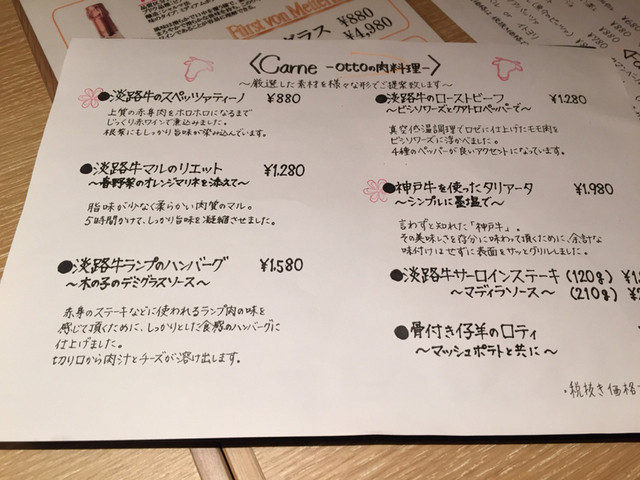 Fürst von Metternich
¥880
グラス
¥4,980
〈Carne -ottoの肉料理-〉
〜厳選した素材を様々な形でご提案致します〜
●淡路牛のスペッツァティーノ ¥880
上質の赤身肉をホロホロになるまで
じっくり赤ワインで煮込みました。
根菜にもしっかり旨味が染み込んでいます。
●淡路牛マルのリエット ¥1,280
〜春野菜のオレンジマリネを添えて〜
脂味が少なく柔らかい肉質のマル。
5時間かけて、しっかり旨味を凝縮させました。
●淡路牛ランプのハンバーグ ¥1,580
〜木の子のデミグラスソース〜
赤身のステーキなどに使われるランプ肉の味を
感じて頂くために、しっかりとした食感のハンバーグに
仕上げました。
切り口から肉汁とチーズが溶け出します。
●淡路牛のローストビーフ ¥1,280
〜ビシソワーズとクアトロペッパーで〜
真空低温調理でロゼに仕上げたモモ肉を
ビシソワーズに浮かべました。
4種のペッパーが良いアクセントになっています。
●神戸牛を使ったタリアータ ¥1,980
〜シンプルに藻塩で〜
言わずと知れた「神戸牛」。
その美味しさを存分に味わって頂くために、余計な
味付けはせずに表面をサッとグリルしました。
●淡路牛サーロインステーキ (120g)
〜マディラソース〜 (210g)
●骨付き仔羊のロティ
〜マッシュポテトと共に〜
・税抜き価格